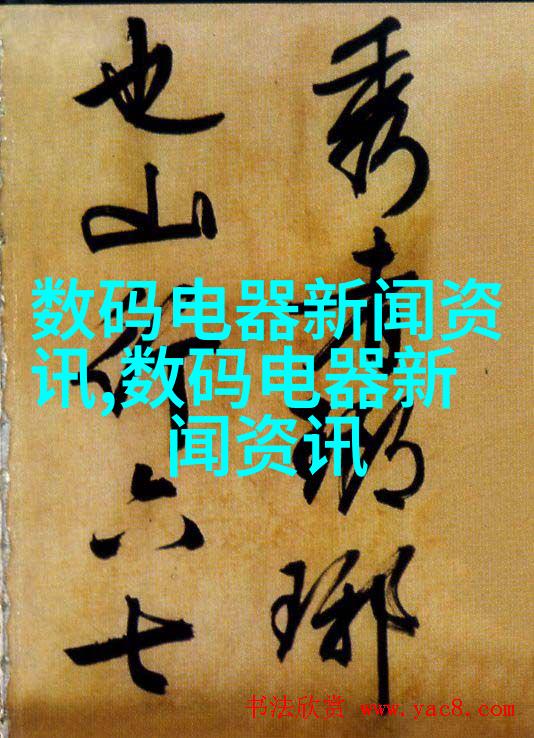 秀者瑯琊
也山行六七
数码电器新闻资
讯,数码电器新
闻资讯
书法欣赏 www.yac8.com